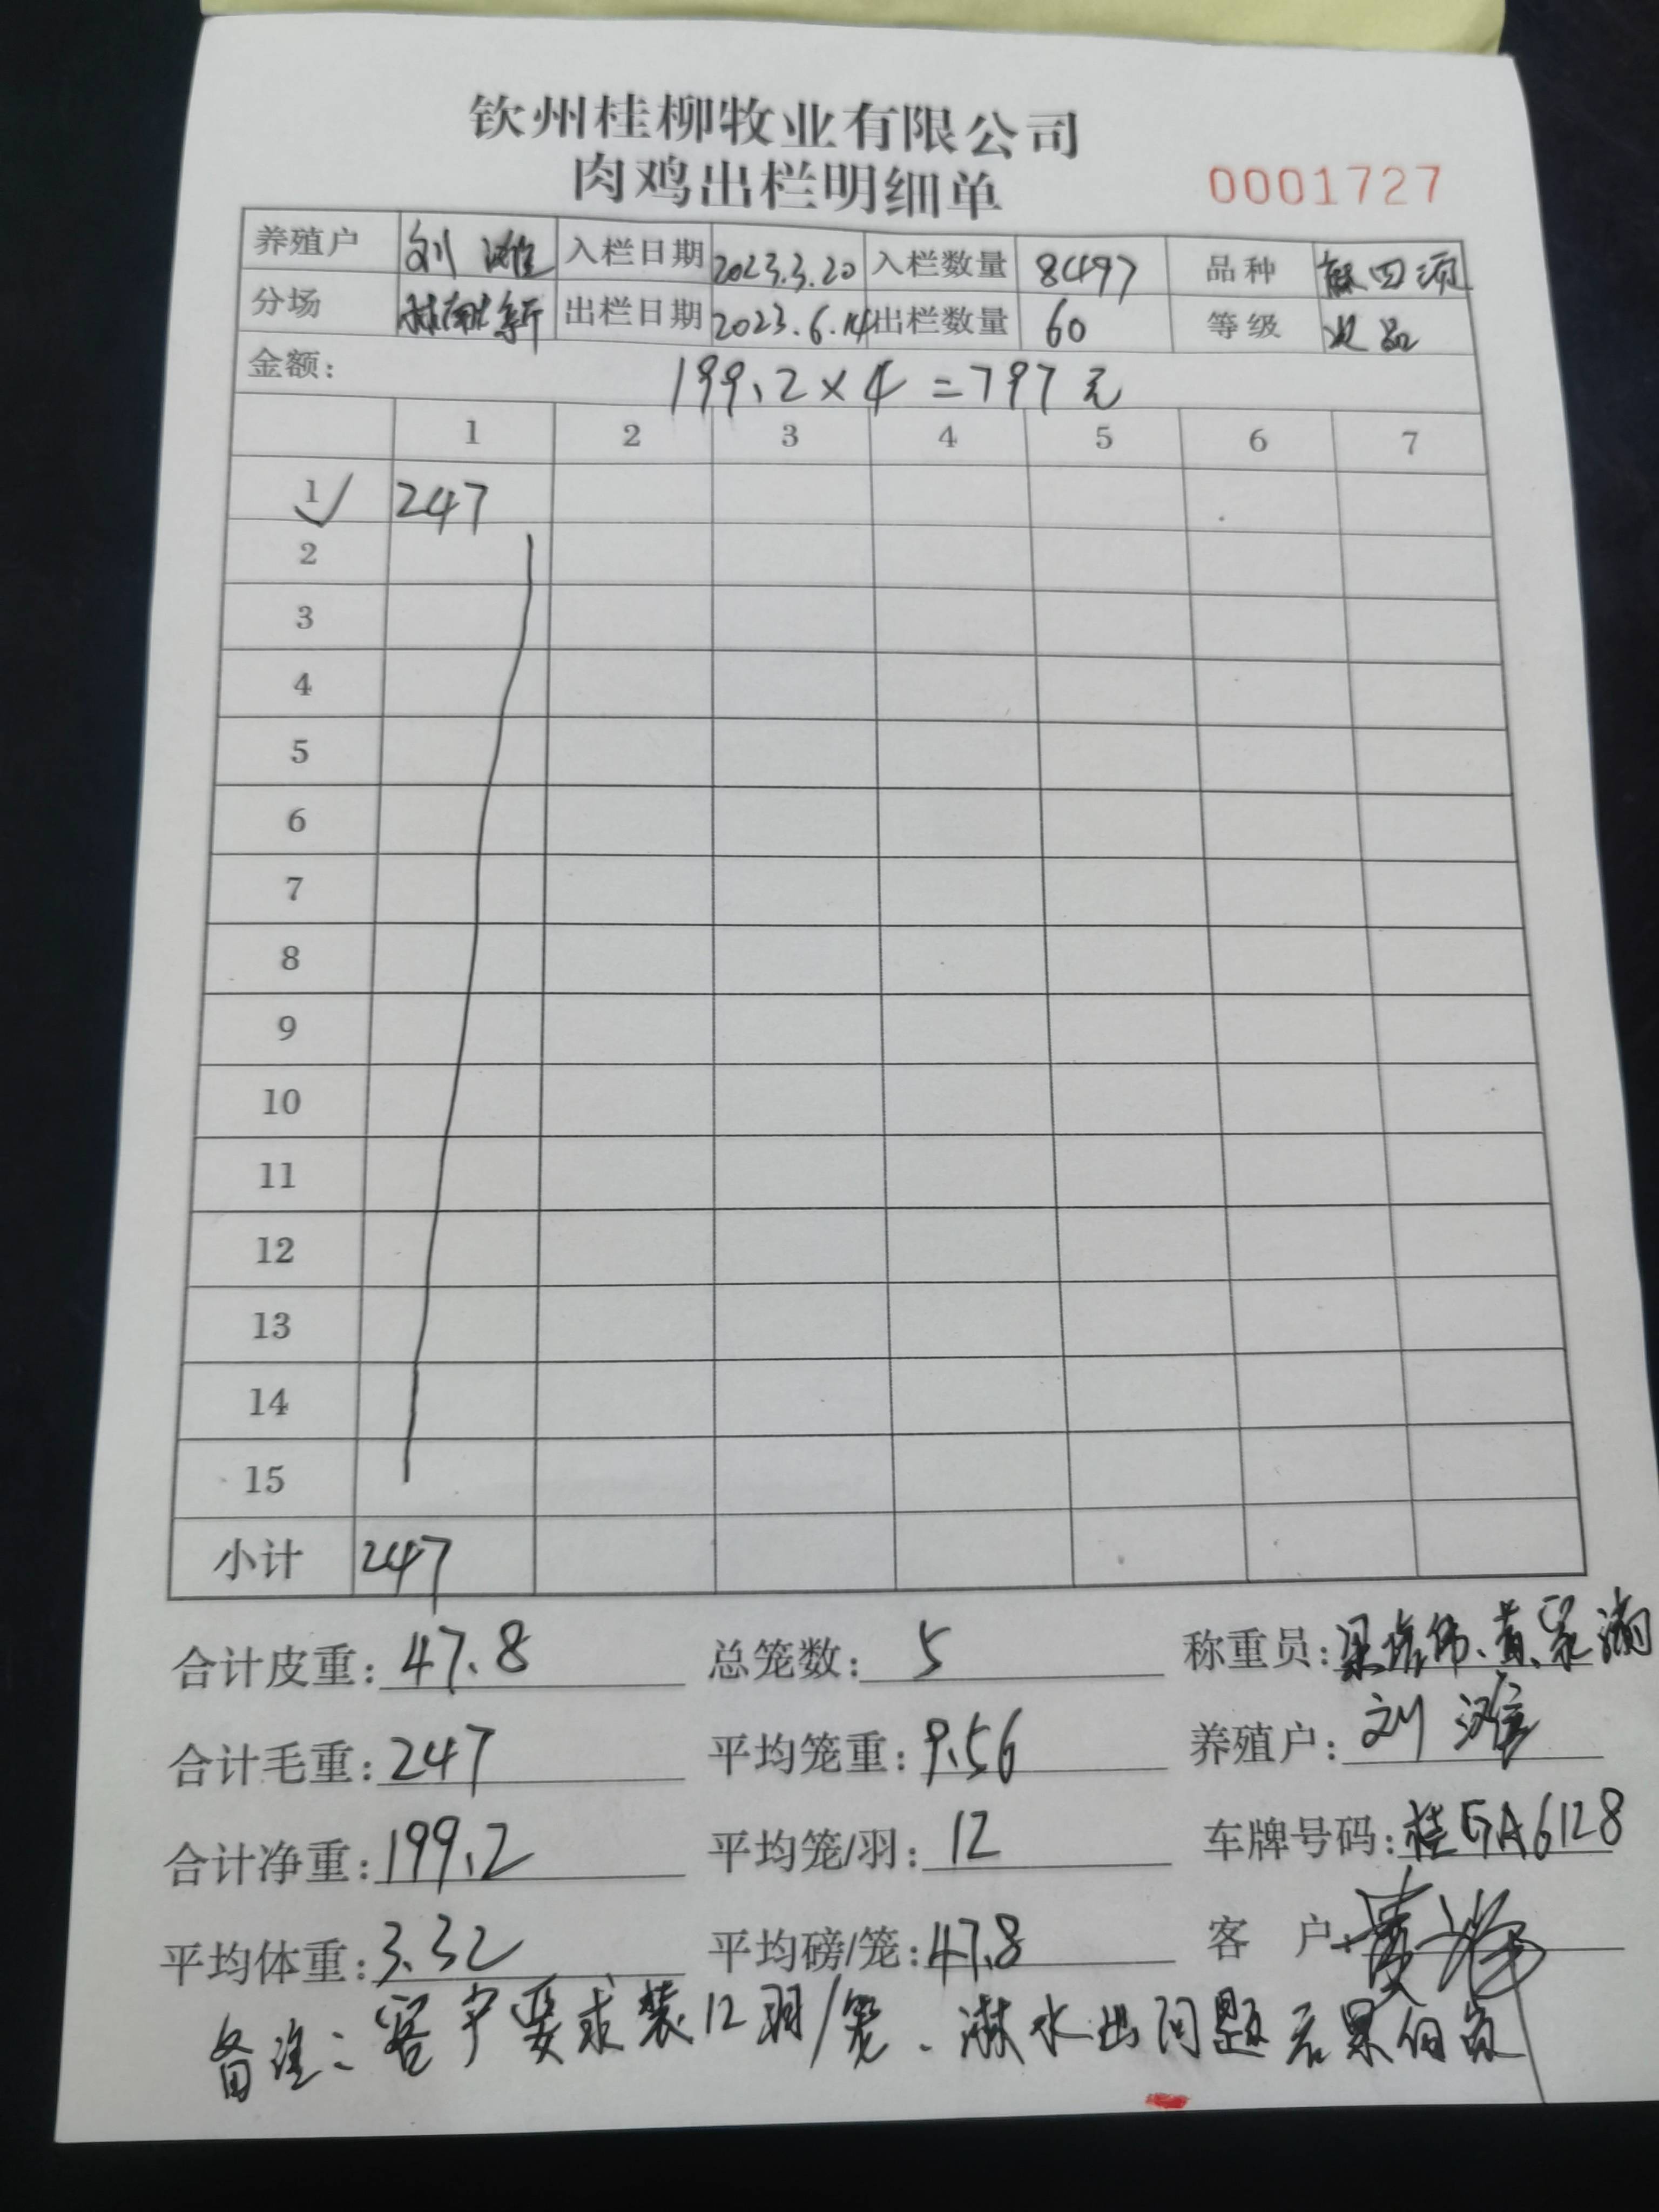 钦州桂柳牧业有限公司
肉鸡出栏明细单 0001727
养殖户 刘 滩 入栏日期 2023.3.20 入栏数量 8497 品种
分场 出栏日期 2023.6.14 出栏数量 60 等级 次品
金额: 199.2×4=797元
1 2 3 4 5 6 7
1 247
2
3
4
5
6
7
8
9
10
11
12
13
14
15
小计 247
合计皮重: 47.8 总笼数: 5 称重员:
合计毛重: 247 平均笼重: 9.56 养殖户: 刘 滩
合计净重: 199.2 平均笼/羽: 12 车牌号码: 桂GA6128
平均体重: 3.32 平均磅/笼: 47.8 客 户
备注: 客户要求装12羽/笼、淋水出问题后果自负